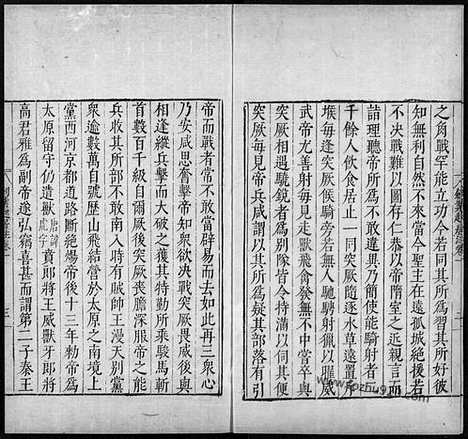 之角戰罕能立功今若同其所為習其所好彼
知無利自然不來當今聖主在遠孤城絶援若
不决戰難以圖存仁恭以帝隋室之近親言而
詣理聽帝所為不敢違異乃簡使能騎射者二
千餘人飲食居止一同突厥隨逐水草遠置斥
堠每逢突厥候騎旁若無人馳騁射獵以曜威
武帝尤善射每見走獸飛禽發無不中嘗卒與
突厥相遇驍銳者為別隊皆令持滿以伺其便
突厥每見帝兵咸謂似其所為疑其部落有引
帝而戰者常不敢當辟易而去如此再三衆心
乃安咸思奮擊帝知衆欲決戰突厥畏威後與
相逢縱兵擊而大破之獲其特勤所乘駿馬斬
首數百千級自爾厥後突厥喪膽深服帝之能
兵收其所部不敢南入時有賊帥王漫天別黨
衆逾數萬自號歷山飛結營於太原之南境上
黨西河京都道路斷絶煬帝後十三年勅帝為
太原留守仍遣獸唐諱虎字賁郎將王威獸牙郎將
高君雅為副帝遂私竊喜甚而謂第二子秦王